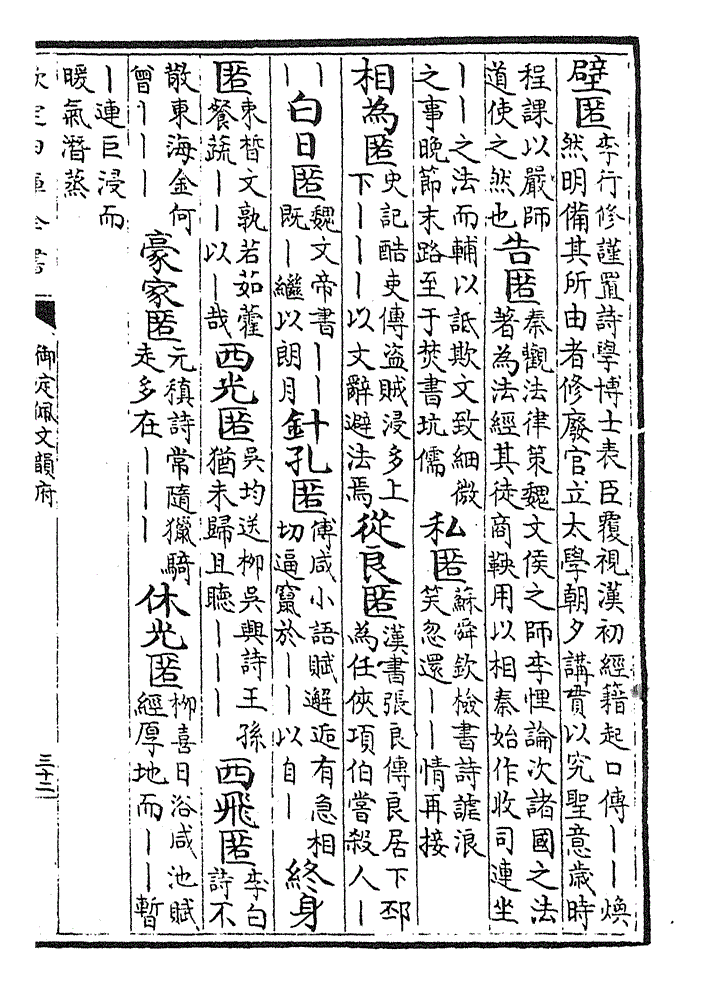 壁匿李行修謹置詩學博士表臣覆視漢初經籍起口傳丨丨煥然明備其所由者修廢官立太學朝夕講貫以究聖意歲時
程課以嚴師道使之然也告匿秦觀法律策魏文侯之師李悝論次諸國之法著為法經其徒商鞅用以相秦始作收司連坐
丨丨之法而輔以詆欺文致細微之事晚節末路至于焚書坑儒私匿蘇舜欽檢書詩謔浪笑忽還丨丨情再接
相為匿史記酷吏傳盜賊浸多上下丨丨丨以文辭避法焉從良匿漢書張良傳良居下邳為任俠項伯嘗殺人丨
丨丨白日匿魏文帝書丨丨既丨繼以朗月針孔匿傅咸小語賦邂逅有急相切逼竄於丨丨以自丨終身
匿束晳文孰若茹藿餐蔬丨丨以丨哉西光匿吳均送柳吳興詩王孫猶未歸且聽丨丨丨西飛匿李白詩不
散東海金何曾丨丨丨豪家匿元稹詩常隨獵騎走多在丨丨丨休光匿柳喜日浴咸池賦經厚地而丨丨暫
丨連巨浸而暖氣潛蒸
欽定四庫全書
御定佩文韻府
三十二